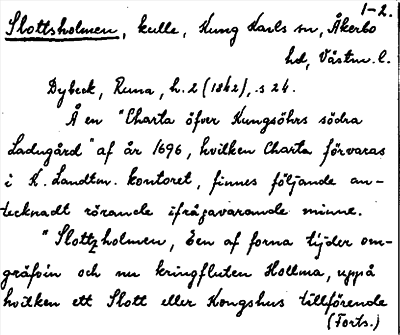 1-2.
Slottsholmen, kulle, Kung Karls sn, Åkerbo
hd, Västm. l.
Dybeck, Runa, h. 2 (1842), s 24.
Å en "Charta öfver Kungsöhrs södra
Ladugård" af år 1696, hvilken Charta förvaras
i K. Landtm. kontoret, finnes följande an-
tecknadt rörande ifrågavarande minne.
"Slottzholmen, Een af forna tijder om-
gräfvin och nu kringfluten Hollma, uppå
hvilken ett Slott eller Kongshus tillförende
(Forts.)